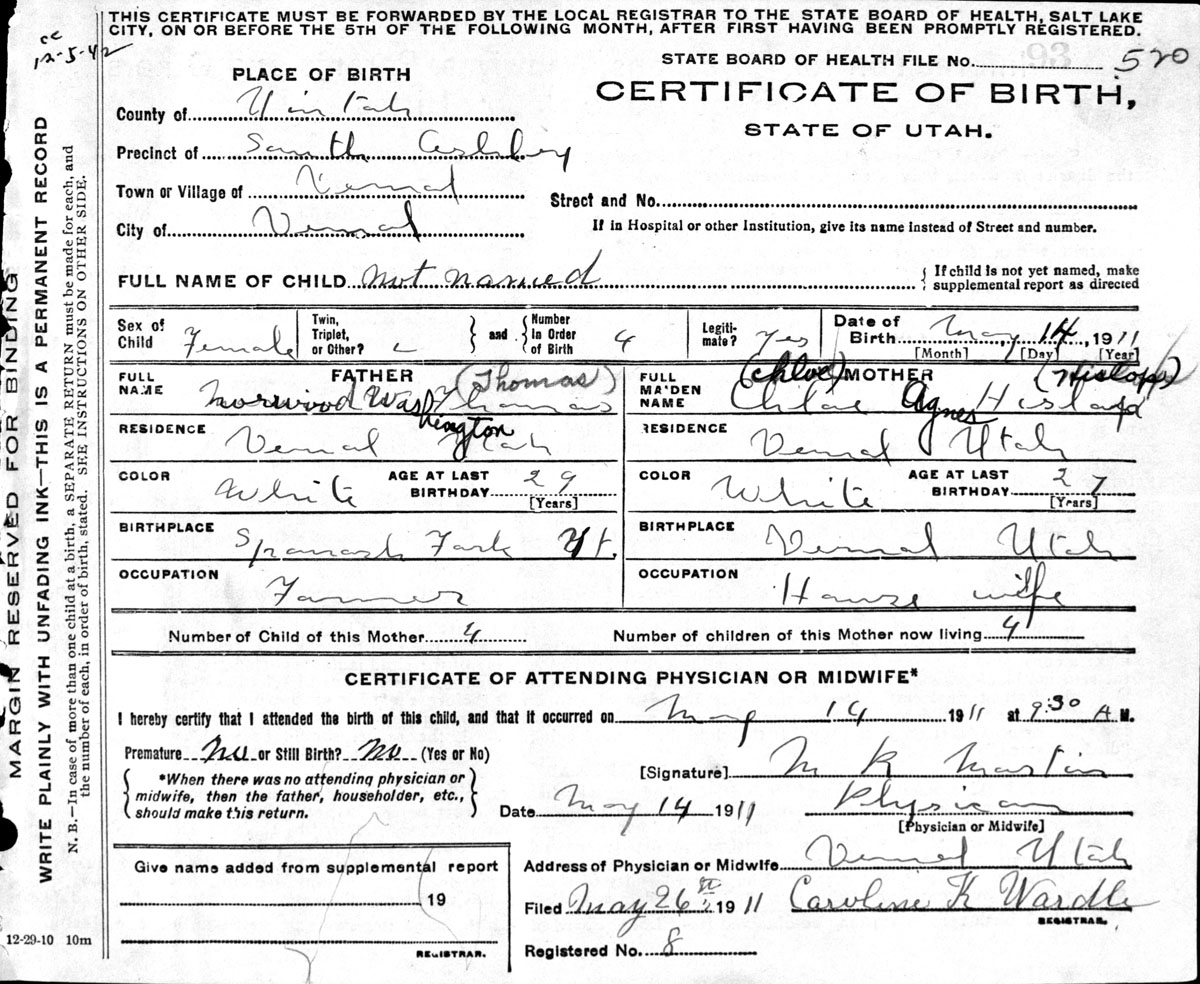 THIS CERTIFICATE MUST BE FORWARDED BY THE LOCAL REGISTRAR TO THE STATE BOARD OF HEALTH, SALT LAKE
CITY, ON OR BEFORE THE 5TH OF THE FOLLOWING MONTH, AFTER FIRST HAVING BEEN PROMPTLY REGISTERED.
cc
12-5-42
STATE BOARD OF HEALTH FILE No. 93 520
PLACE OF BIRTH
CERTIFICATE OF BIRTH,
STATE OF UTAH.
County of Uintah
Precinct of South
Town or Village of Vernal
Street and No.
City of Vernal
If in Hospital or other Institution, give its name instead of Street and number.
FULL NAME OF CHILD Not named
{ If child is not yet named, make
supplemental report as directed
Sex of Child Female
Twin, Triplet, or Other? } and { Number in Order of Birth 4
Legiti- mate? Yes
Date of Birth May 14, 1911
[Month] [Day] [Year]
FATHER (Thomas)
FULL NAME Norwood Washington Thomas
(Chloe) MOTHER (Hislop)
FULL MAIDEN NAME Chloe Agnes
RESIDENCE Vernal Utah
RESIDENCE Vernal Utah
COLOR White AGE AT LAST BIRTHDAY 29 [Years]
COLOR White AGE AT LAST BIRTHDAY 27 [Years]
BIRTHPLACE Spanish Fork Ut.
BIRTHPLACE Vernal Utah
OCCUPATION Farmer
OCCUPATION House wife
Number of Child of this Mother 4
Number of children of this Mother now living 4
CERTIFICATE OF ATTENDING PHYSICIAN OR MIDWIFE*
I hereby certify that I attended the birth of this child, and that it occurred on May 14 1911 at 9:30 A.M.
Premature No or Still Birth? No (Yes or No)
{ *When there was no attending physician or
midwife, then the father, householder, etc.,
should make this return. }
[Signature] M K Martin
Date May 14 1911 Physician
[Physician or Midwife]
Give name added from supplemental report
19
REGISTRAR.
Address of Physician or Midwife Vernal Utah
Filed May 26 1911 Caroline K Wardle
REGISTRAR.
Registered No. 8
12-29-10 10m
MARGIN RESERVED FOR BINDING
WRITE PLAINLY WITH UNFADING INK—THIS IS A PERMANENT RECORD
N. B.—In case of more than one child at a birth, a SEPARATE RETURN must be made for each, and
the number of each, in order of birth, stated. SEE INSTRUCTIONS ON OTHER SIDE.